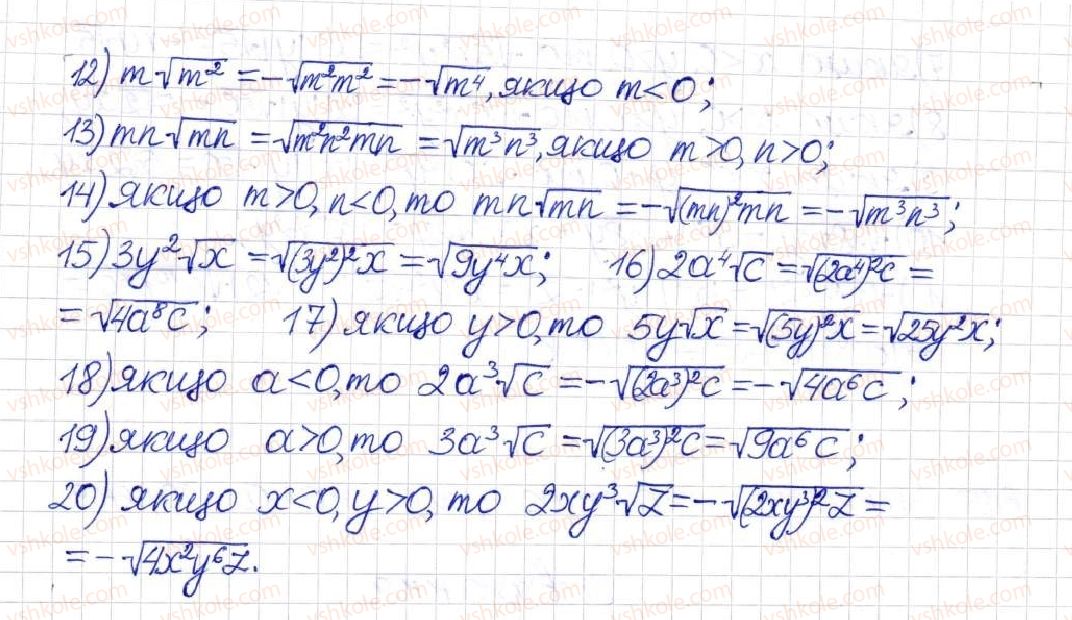 12) m√m² = -√m²m² = -√m⁴, якщо m<0;
13) mn√mn = √m²n²mn = √m³n³, якщо m>0, n>0;
14) якщо m>0, n<0, то mn√mn = -√(mn)²mn = -√m³n³;
15) 3y²√x = √(3y²)²x = √9y⁴x; 16) 2a⁴√c = √(2a⁴)²c =
= √4a⁸c; 17) якщо y>0, то 5y√x = √(5y)²x = √25y²x;
18) якщо a<0, то 2a³√c = -√(2a³)²c = -√4a⁶c;
19) якщо a>0, то 3a³√c = √(3a³)²c = √9a⁶c;
20) якщо x<0, y>0, то 2xy³√z = -√(2xy³)²z =
= -√4x²y⁶z.
vshkole.com